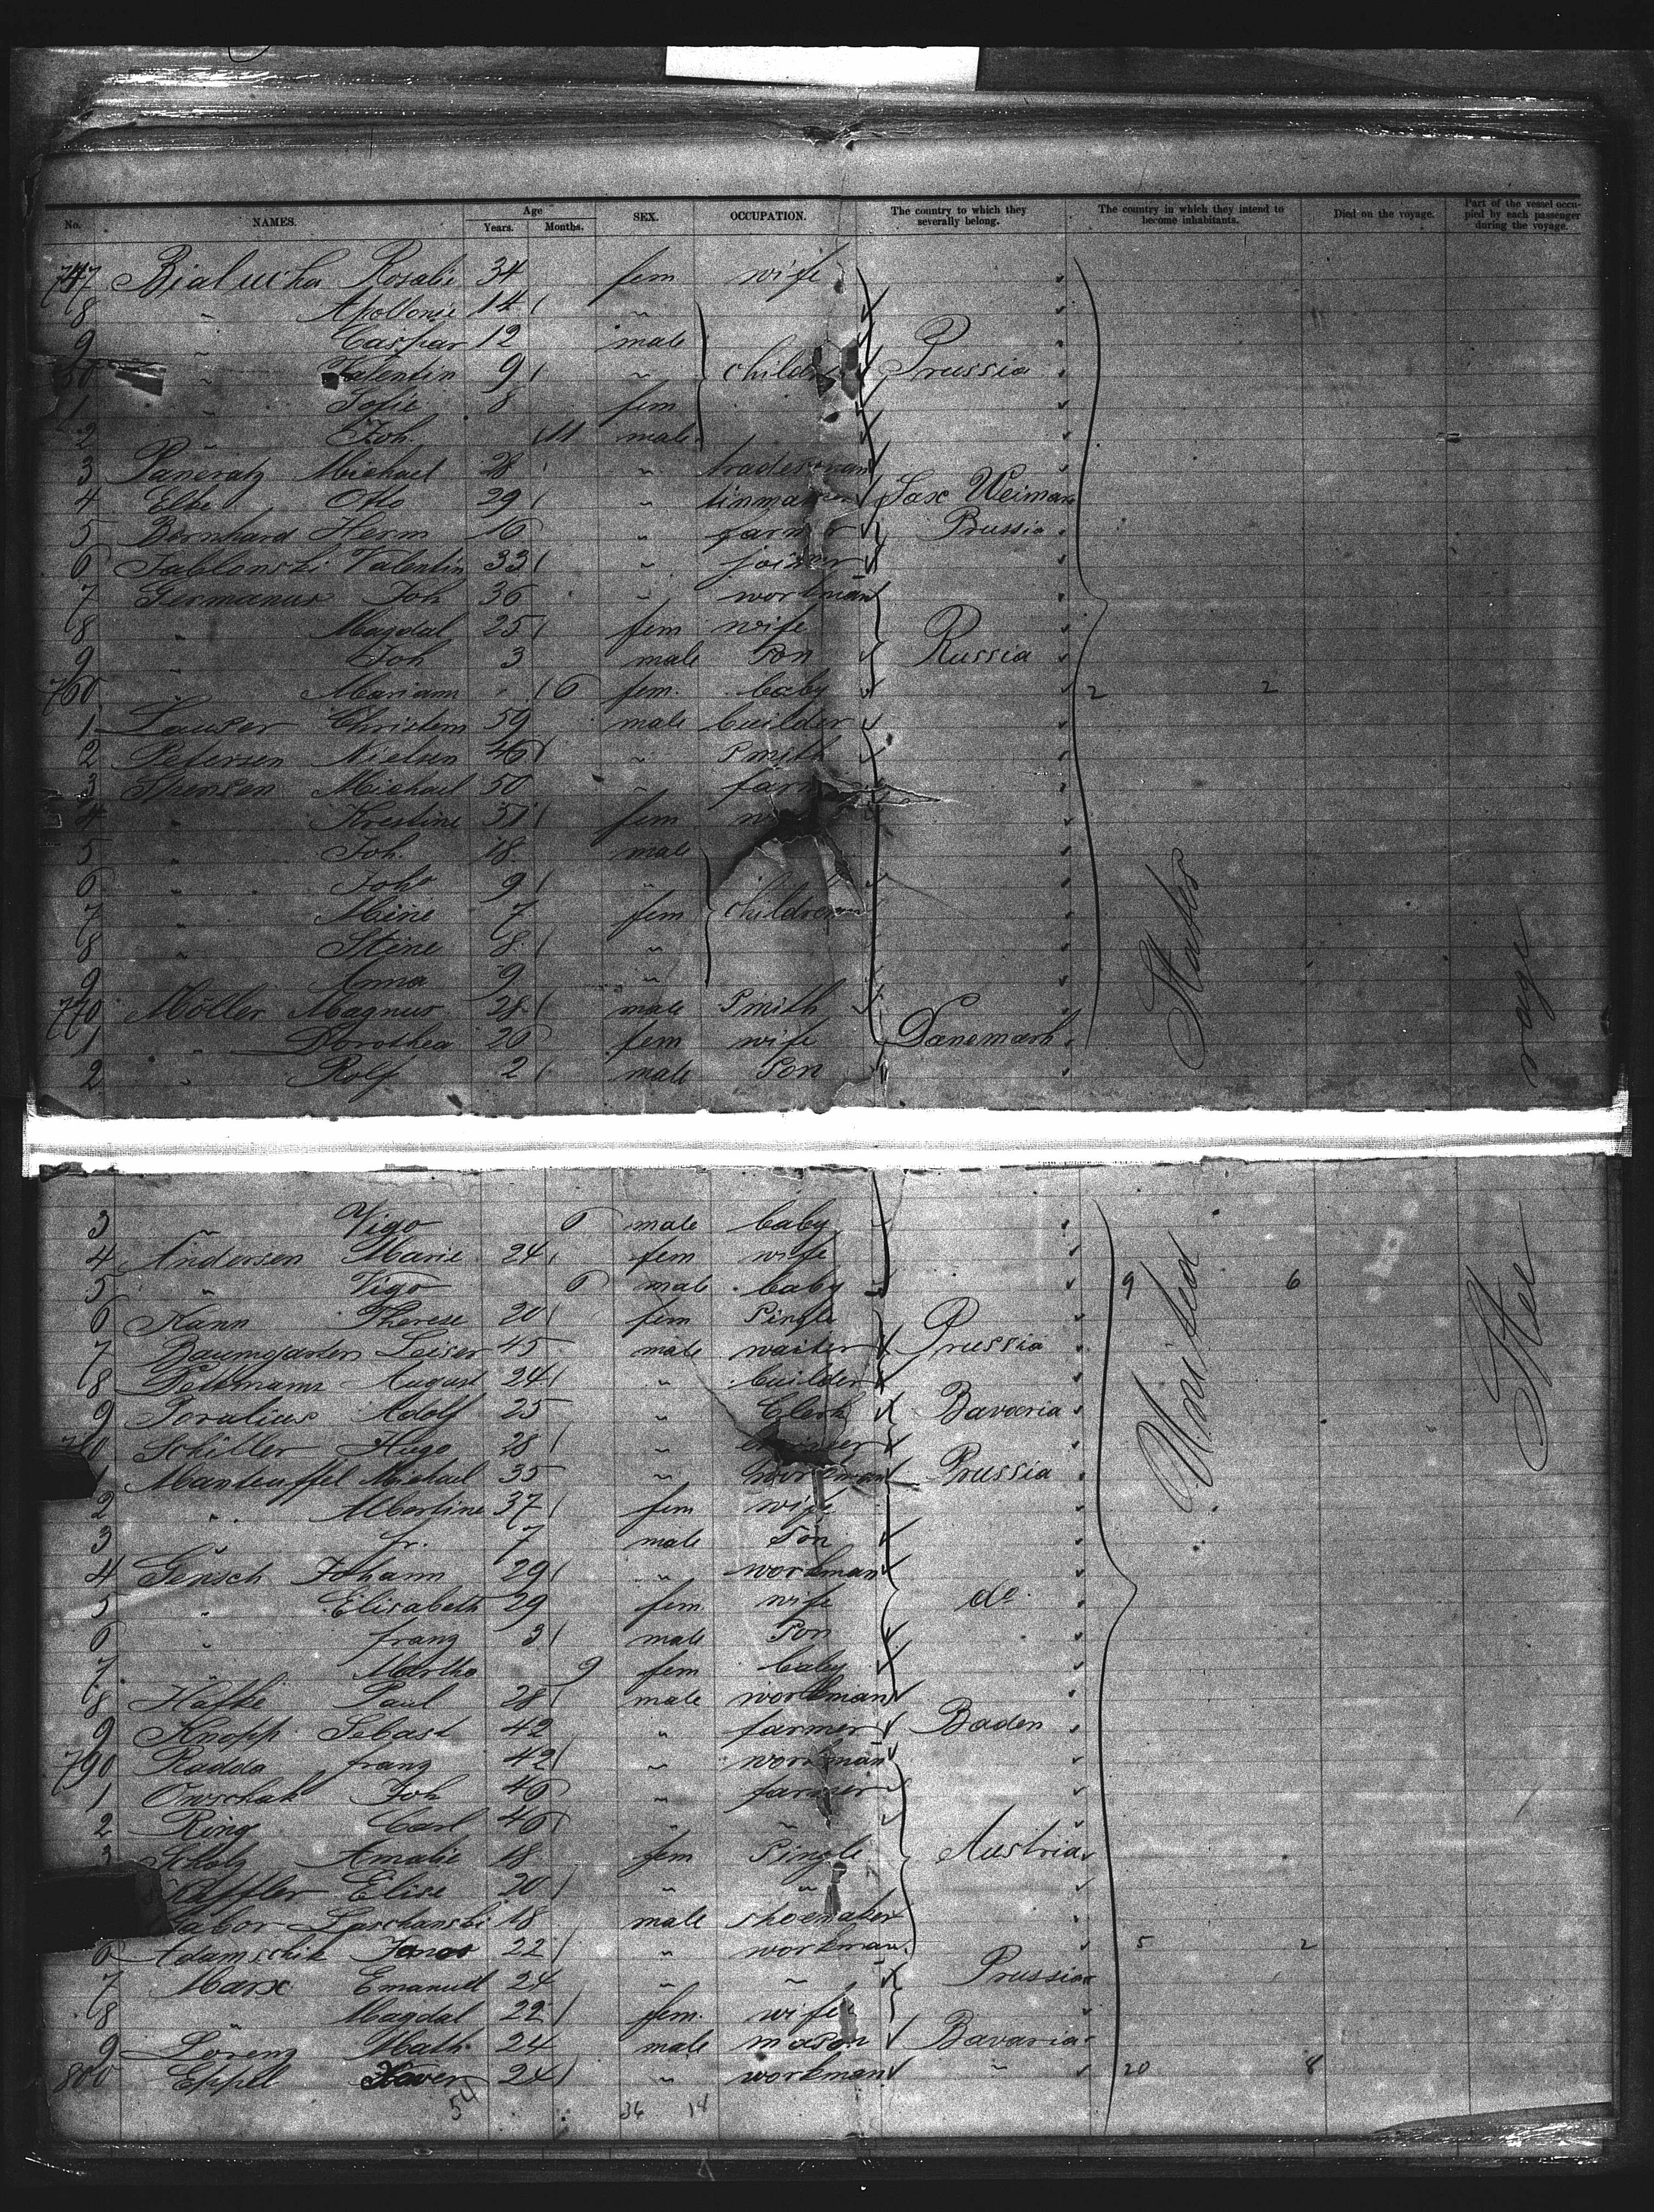 No. NAMES. Age Years. Months. SEX. OCCUPATION. The country to which they severally belong. The country in which they intend to become inhabitants. Died on the voyage. Part of the vessel occupied by each passenger during the voyage.
747 Rosalie 34 fem wife
8 " Apollonie 14 "
9 " Caspar 12 male
50 " Valentin 9 " children Prussia
1 " Sofie 8 fem
2 " Joh. 11 male
3 Pancratz Michael 28 " tradesman
4 Elbe Otto 29 " Sax Weimar
5 Bernhard Herm 16 " farmer Prussia
6 Jablonski Valentin 33 " joiner
7 Germanus Joh 36 " workman
8 " Magdal 25 fem wife
9 " Joh 3 male Son Russia
760 " Mariam 6 fem. baby 2 2
1 Christern 59 male builder
2 Petersen Nielsen 46 " Smith
3 Michael 50 " farmer
4 " Krestine 51 fem
5 " Joh. 18 male
6 " 9 "
7 " Mine 7 fem children
8 " Stine 8 "
9 " Anna 9 "
770 Möller Magnus 28 male Smith
1 " Dorothea 26 fem wife Danemark
2 " Rolf 2 male Son
3 " Vigo 6 male baby
4 Andersen Marie 24 fem wife
5 " Vigo 6 male baby 9 6
6 Kann Therese 20 fem Single
7 Baumgarten Leiser 45 male waiter Prussia
8 August 24 " builder
9 Adolf 25 " Clerk Bavaria
Schiller Hugo 28 "
1 Manteuffel Michael 35 " workman Prussia
2 " Albertine 37 fem wife
3 " fr. 7 male Son
4 Gensch Johann 29 " workman
5 " Elisabeth 29 fem wife do
6 " franz 3 male Son
7 " Martha 9 fem baby
8 Paul 28 male workman
9 Knopp Sebast 42 " farmer Baden
790 Radda franz 42 " workman
1 Joh 46 " farmer
2 Ring Carl 46 " "
3 Scholz Amalie 18 fem Single Austria
Elise 20 " "
18 male shoemaker
6 Adamschik 22 " workman 5 2
7 Marx Emanuel 24 " " Prussia
8 " Magdal 22 fem. wife
9 Lorenz Math 24 male mason Bavaria
800 Eppel Xaver 24 " workman " 20 8
54 36 18
United States
Steerage